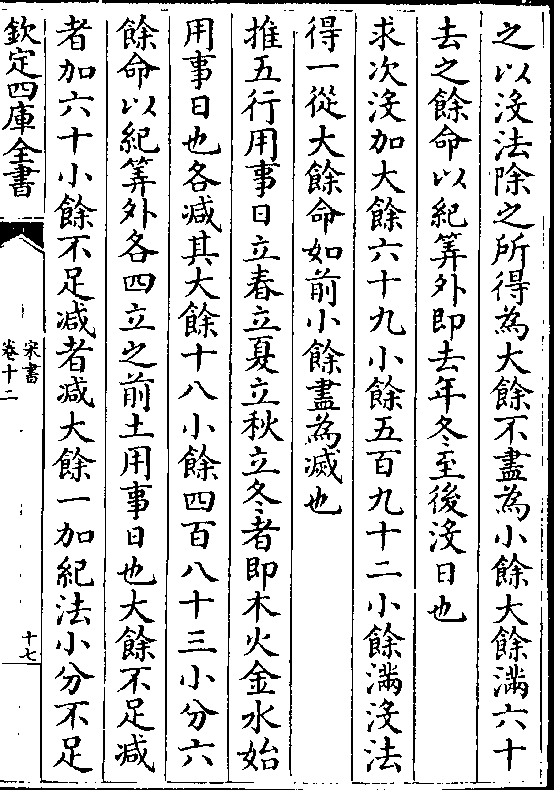 之以沒法除之所得為大餘不盡為小餘大餘滿六十
去之餘命以紀筭外即去年冬至後沒日也
求次沒加大餘六十九小餘五百九十二小餘滿沒法
得一從大餘命如前小餘盡為滅也
推五行用事日立春立夏立秋立冬者即木火金水始
用事日也各减其大餘十八小餘四百八十三小分六
餘命以紀筭外各四立之前土用事日也大餘不足减
者加六十小餘不足减者减大餘一加紀法小分不足
欽定四庫全書
宋書
卷十二
十七